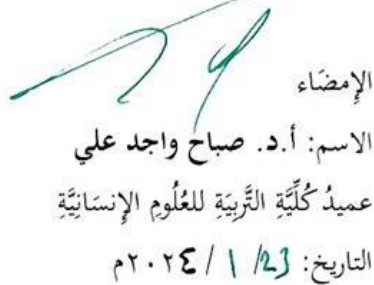 الإمضَاء
الاسم: أ.د. صباح واجد علي
عميدُ كُلِّيَّةِ التَّربِيَةِ للعُلُومِ الإِنسَانِيَّةِ
التاريخ: 23/ ١ / ٢٠٢٤م